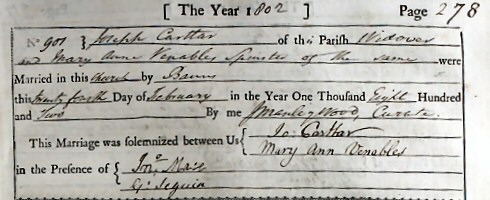 [ The Year 1802 ] Page 278
No 901 } Joseph Carttar of this Parish Widower
and Mary Anne Venables Spinster of the same were
Married in this Church by Banns
this twenty fourth Day of February in the Year One Thousand Eight Hundred
and Two By me Manley Wood, Curate
This Marriage was solemnized between Us { Jo: Carttar
Mary Ann Venables
in the Presence of { Jno. Mace
G: Seguin